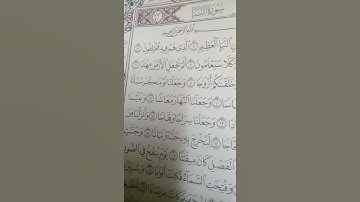 سُورَةُ النَّبَإِ
بِسْمِ اللَّهِ الرَّحْمَٰنِ الرَّحِيمِ
النَّبَإِ الْعَظِيمِ ٢ الَّذِي هُمْ فِيهِ مُخْتَلِفُونَ ٣
كَلَّا سَيَعْلَمُونَ ٥ أَلَمْ نَجْعَلِ الْأَرْضَ مِهَٰدًا
خَلَقْنَٰكُمْ أَزْوَٰجًا ٨ وَجَعَلْنَا نَوْمَكُمْ سُبَاتًا
وَجَعَلْنَا النَّهَارَ مَعَاشًا ١١ وَبَنَيْنَا
وَجَعَلْنَا سِرَاجًا وَهَّاجًا ١٣ وَأَنزَلْنَا مِنَ
لِّنُخْرِجَ بِهِۦ حَبًّا وَنَبَاتًا ١٥ وَجَنَّٰتٍ
الْفَصْلِ كَانَ مِيقَٰتًا ١٧ يَوْمَ يُنفَخُ فِي الصُّورِ
وَفُتِحَتِ السَّمَآءُ فَكَانَتْ أَبْوَٰبًا ١٩ وَسُيِّرَتِ
كَانَتْ مِرْصَادًا